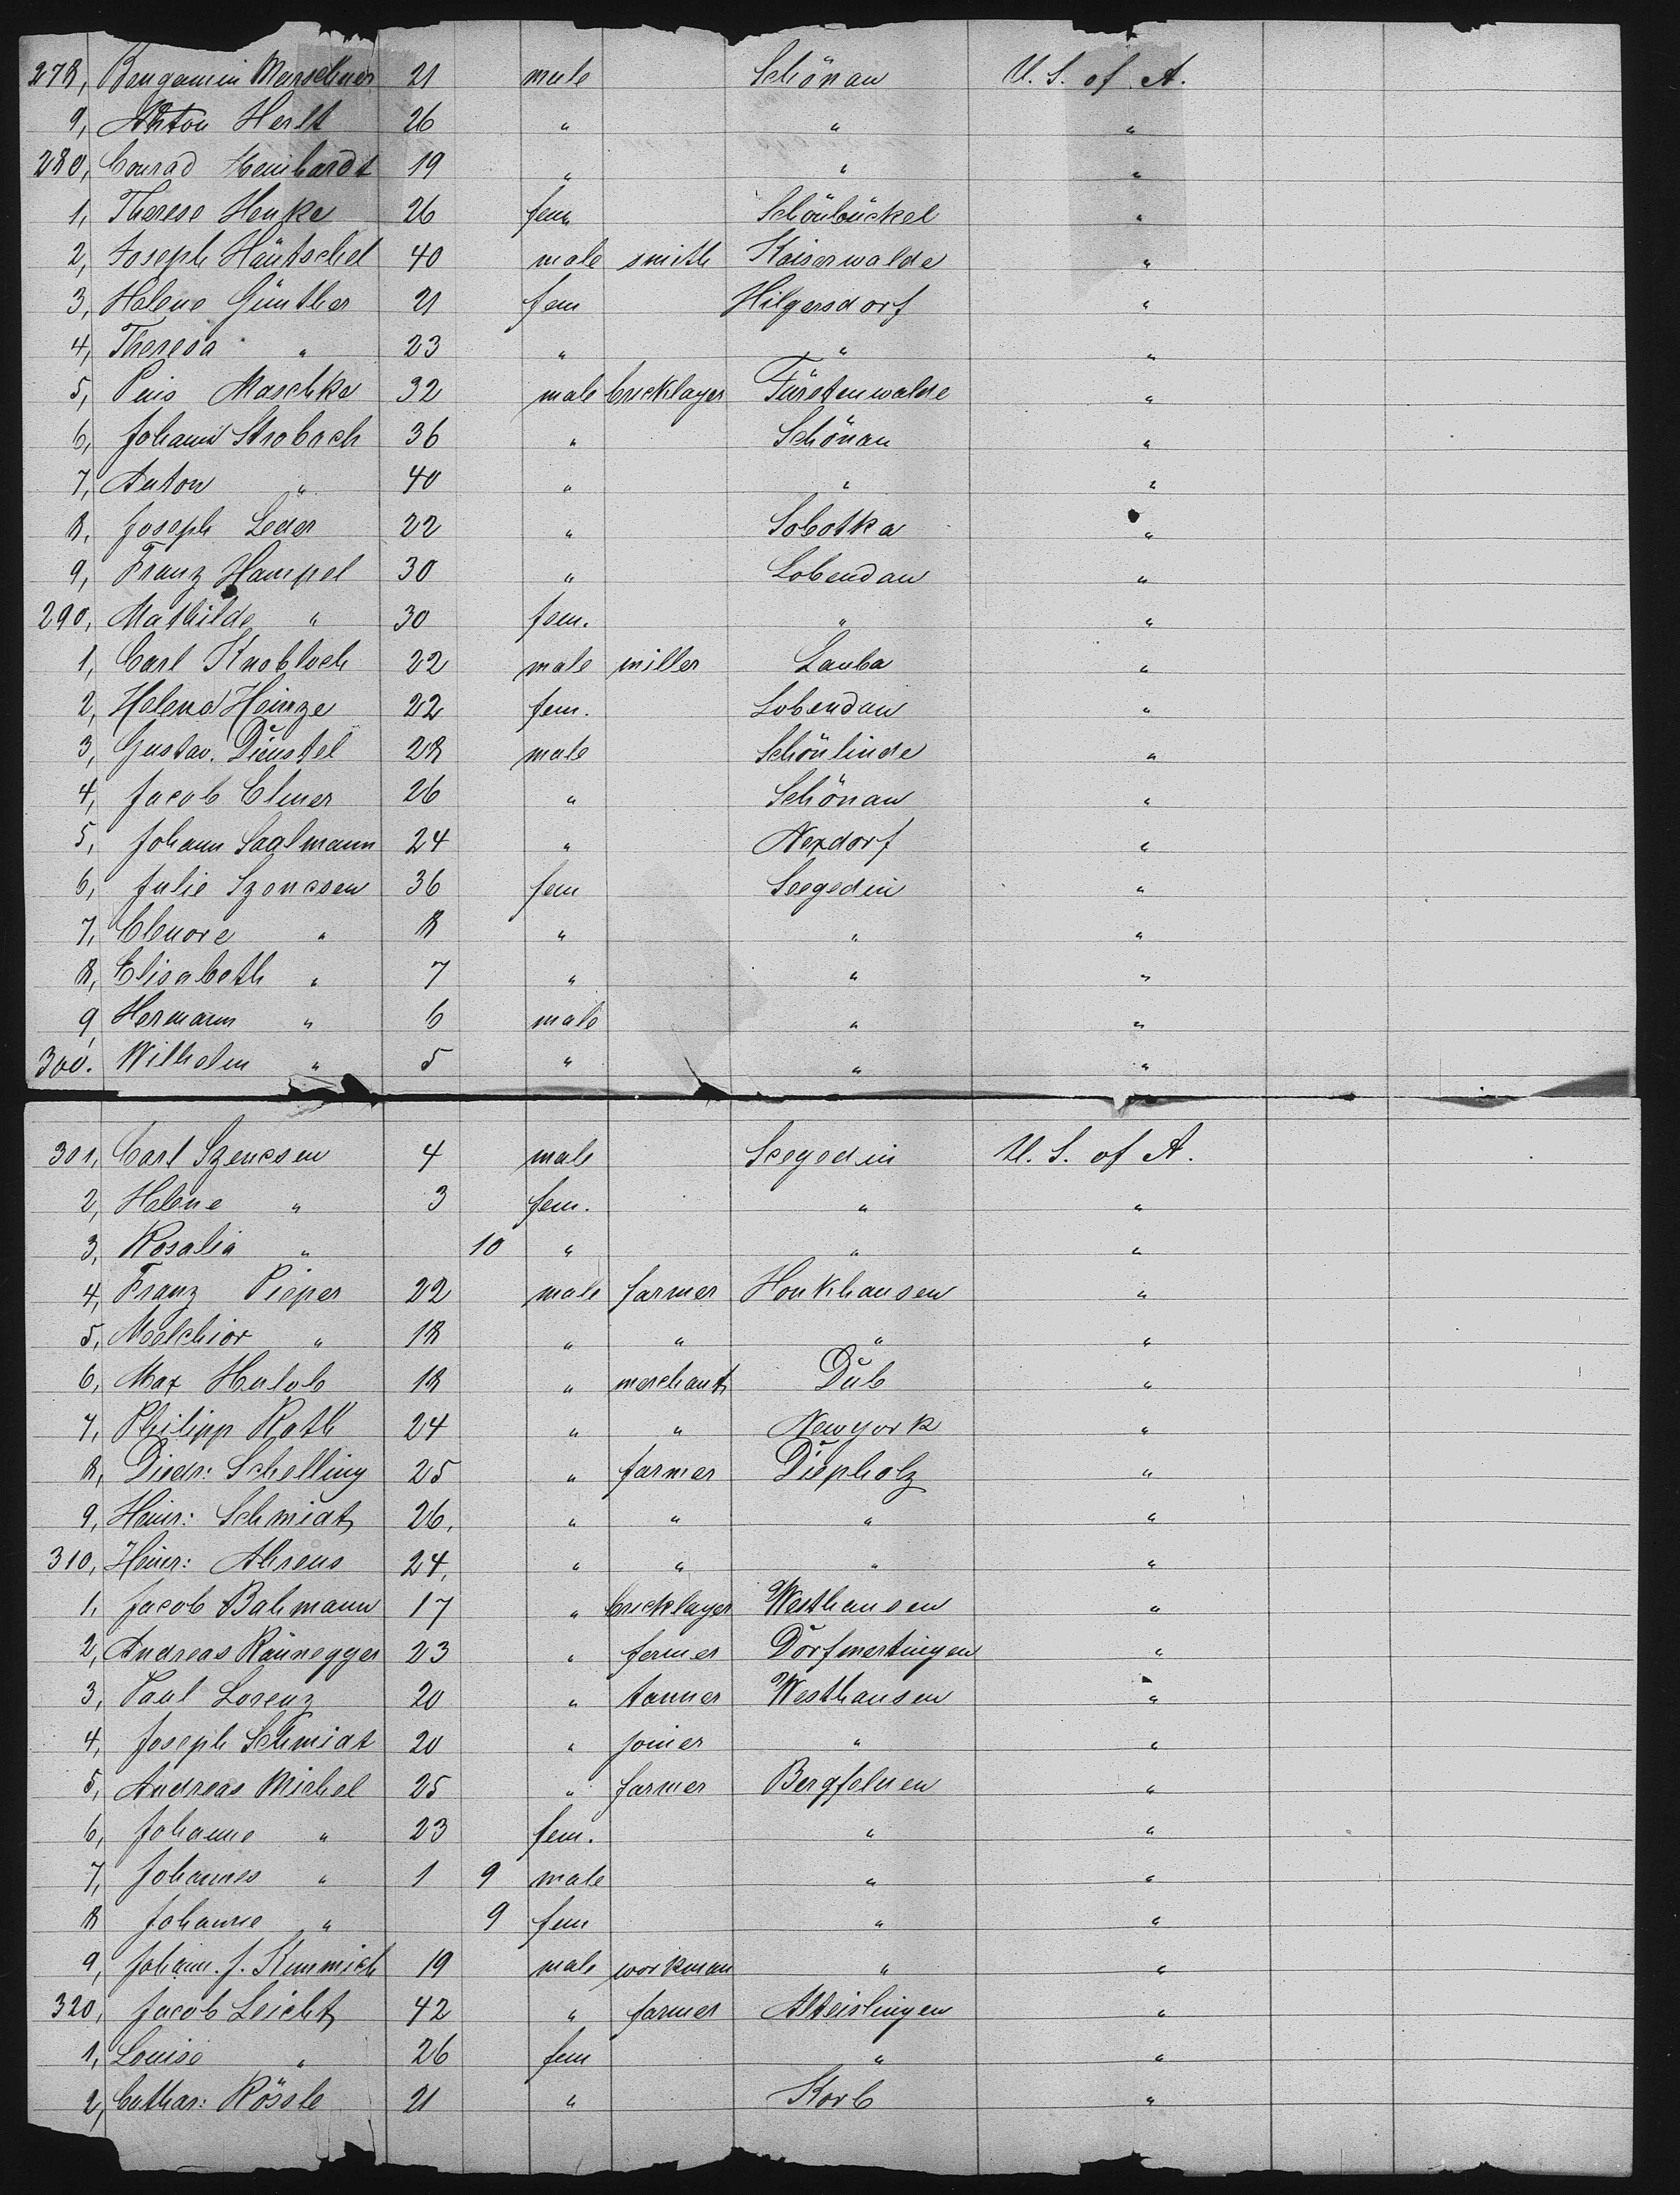 278, Bengamin Marschner 21 male Schönau U. S. of A.
9, Anton Herlt 26 " " "
280, Conrad Meinhardt 19 " " "
1, Therese Henke 26 fem Schönbückel "
2, Joseph Häntschel 40 male smith Kaiserwalde "
3, Helene Günther 21 fem Hilgersdorf "
4, Theresa " 23 " " "
5, Pius Maschke 32 male bricklayer Fürstenwalde "
6, Johann Strobach 36 " Schönau "
7, Anton " 40 " " "
8, Joseph Leder 22 " Sobotka "
9, Franz Hampel 30 " Lobendau "
290, Mathilde " 30 fem. " "
1, Carl Knobloch 22 male miller Lauba "
2, Helena Heinze 22 fem. Lobendau "
3, Gustav. Dienstel 28 male Schönlinde "
4, Jacob Elmer 26 " Schönau "
5, Johann Saalmann 24 " Nexdorf "
6, Julie Szencsen 36 fem Seegedin "
7, Elenore " 8 " " "
8, Elisabeth " 7 " " "
9, Hermann " 6 male " "
300. Wilhelm " 5 " " "
301, Carl Szencsen 4 male Seegedin U. S. of A.
2, Helene " 3 fem. " "
3, Rosalia " 10 " " "
4, Franz Pieper 22 male farmer Honkhausen "
5, Melchior " 18 " " " "
6, Max Holob 18 " merchant Dub "
7, Philipp Roth 24 " " Newyork "
8, Diedr: Schelling 25 " farmer Diepholz "
9, Heinr: Schmidt 26, " " " "
310, Heinr: Ahrens 24, " " " "
1, Jacob Bahmann 17 " bricklayer Westhausen "
2, Andreas Rännegger 23 " farmer Dorfmertingen "
3, Paul Lorenz 20 " tanner Westhausen "
4, Joseph Schmidt 20 " joiner " "
5, Andreas Michel 25 " farmer Bergfelden "
6, Johanne " 23 fem. " "
7, Johannes " 1 9 male " "
8 Johanne " 9 fem " "
9, Johann. J. Kimmich 19 male workman " "
320, Jacob Leicht 42 " farmer Alteislingen "
1, Louise " 26 fem " "
2, Cathar: Rössle 21 " Korb "